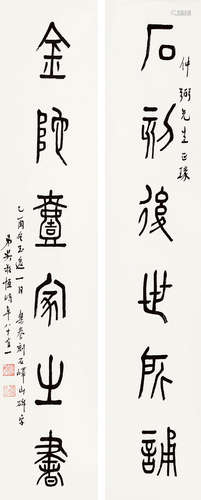 石刻後世所誦
仲弼先生正瑑
金 家之書
乙酉冬至 一日 集秦刻石嶧山碑字
弟吳敬恆時年八十有一